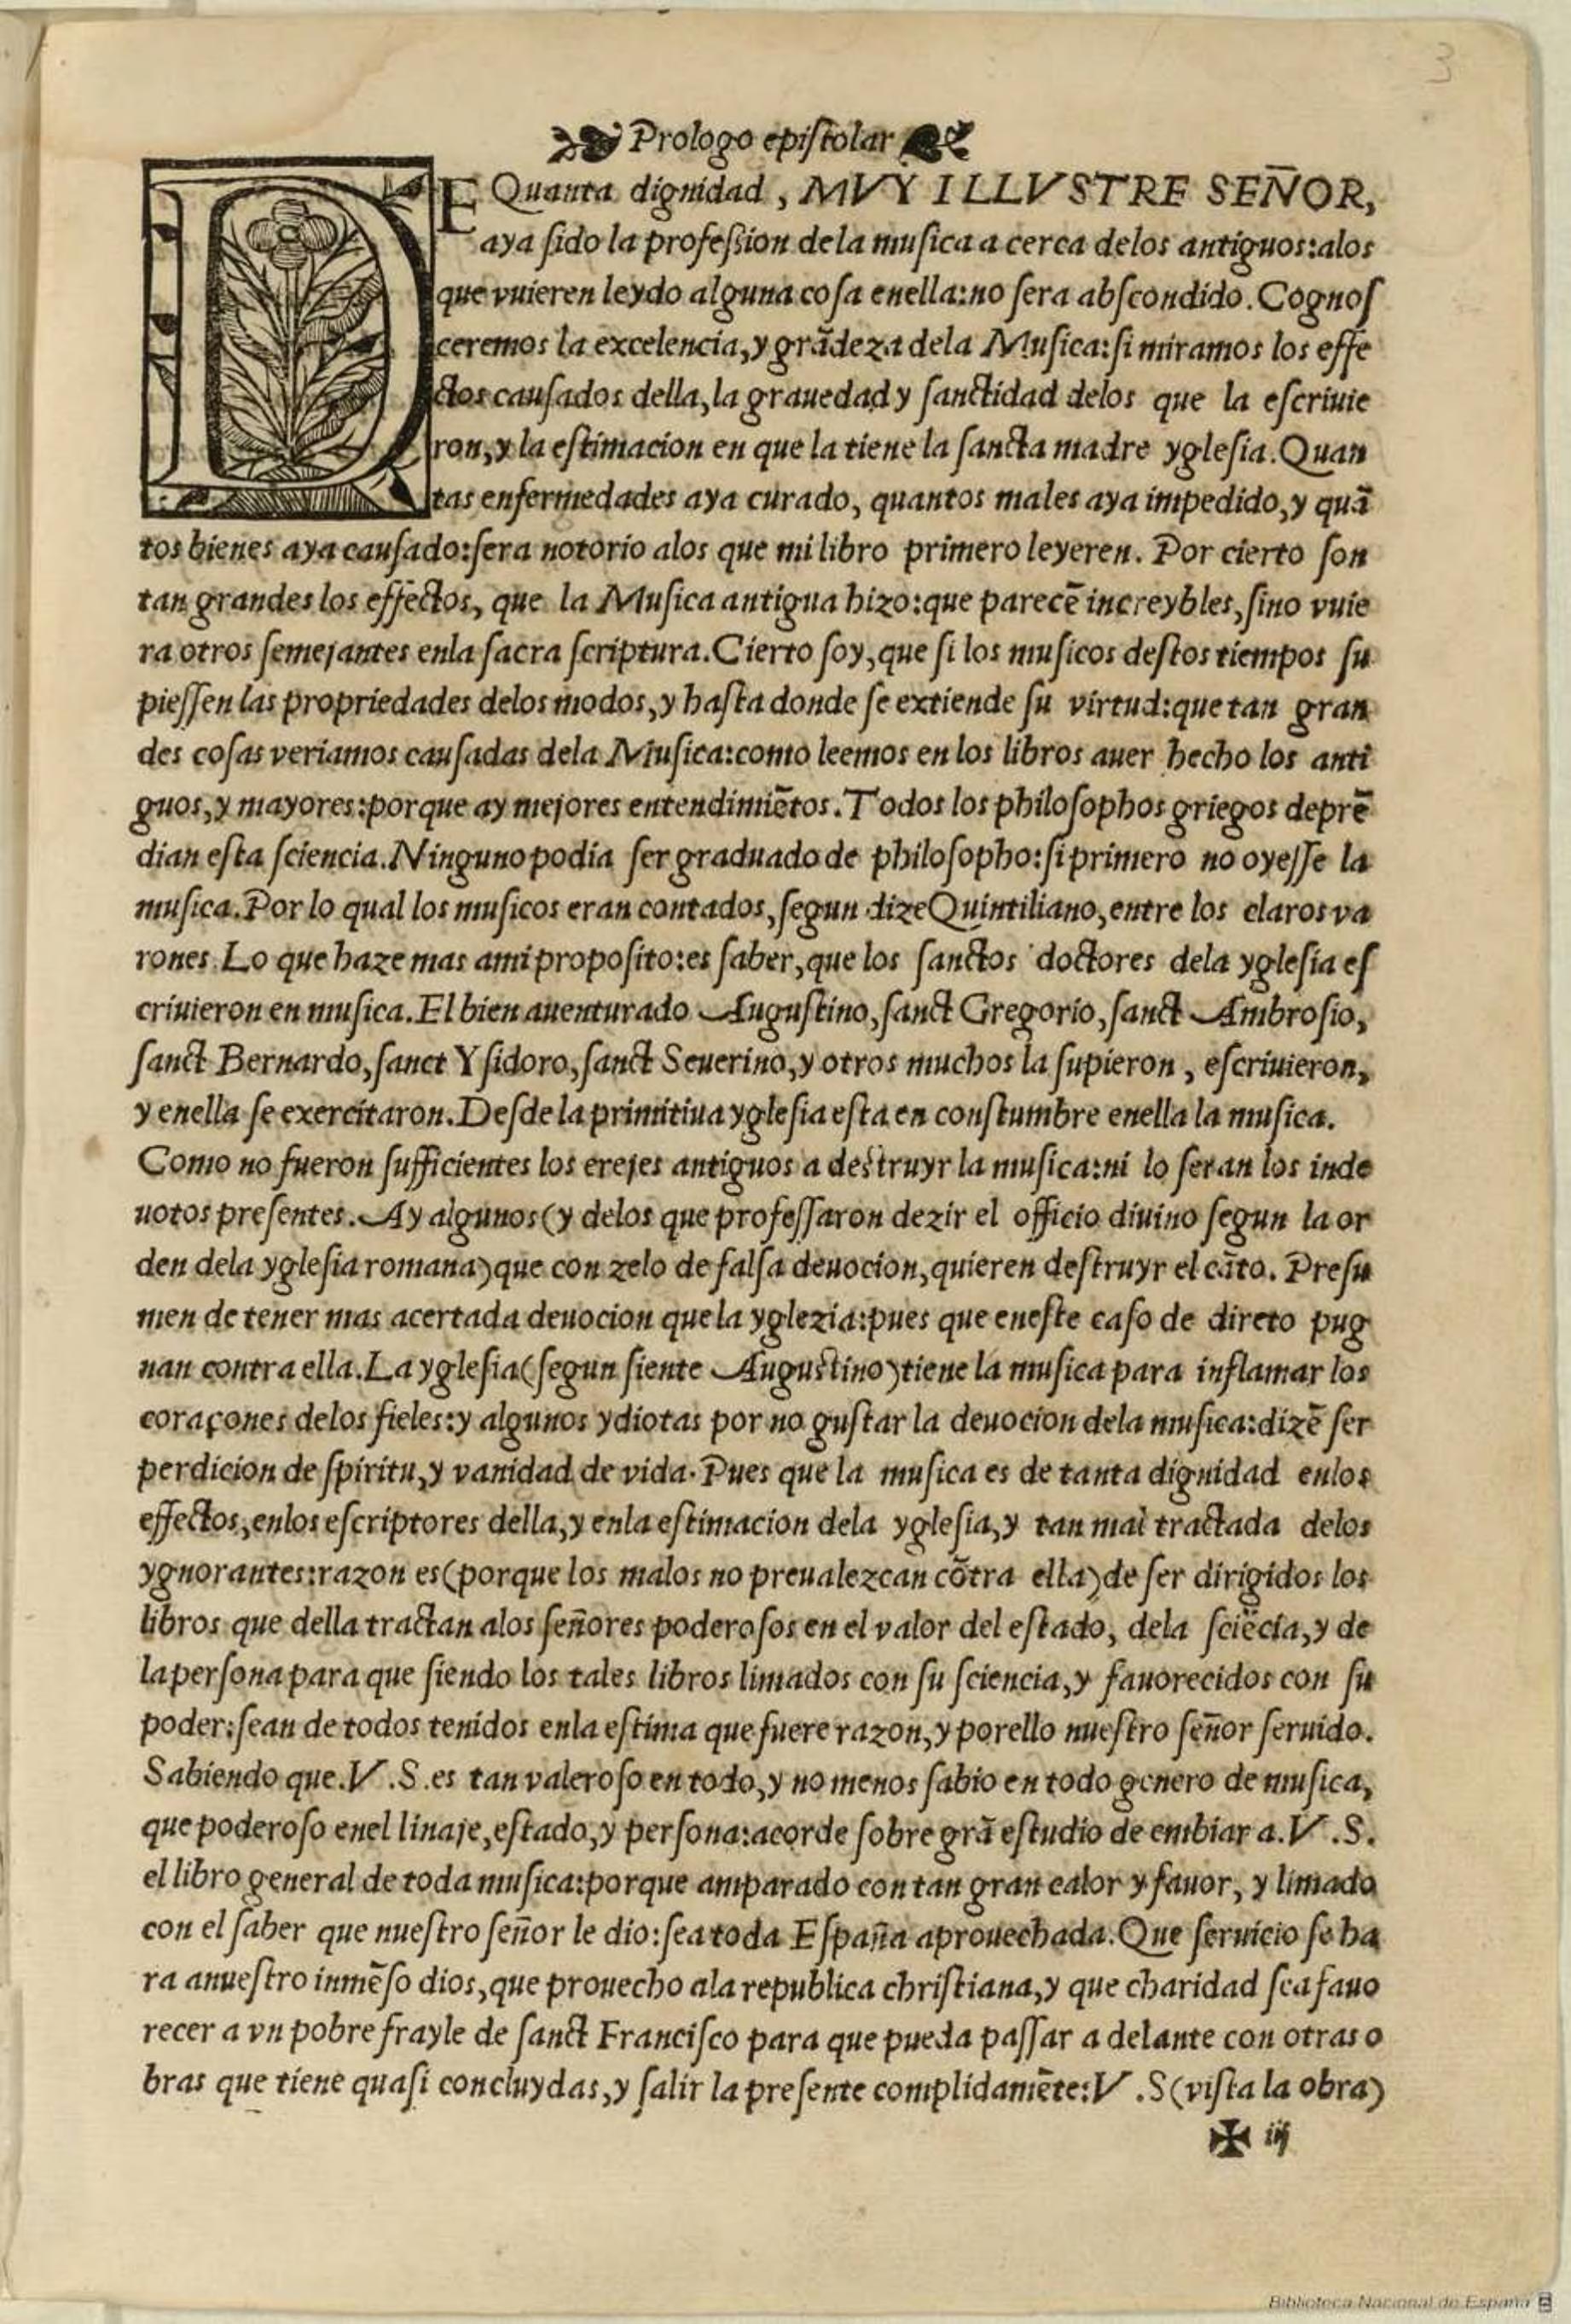 3
Prologo epiſtolar
DE Quanta dignidad, MVY ILLVSTRE SEÑOR,
aya ſido la profeſsion dela muſica a cerca delos antiguos:alos
que vuieren leydo alguna coſa enella:no ſera abſcondido. Cognoſ
ceremos la excelencia,y grãdeza dela Muſica:ſi miramos los effe
ctos cauſados della,la grauedad y ſanctidad delos que la eſcriuie
ron,y la eſtimacion en que la tiene la ſancta madre ygleſia. Quan
tas enfermedades aya curado, quantos males aya impedido,y quã
tos bienes aya cauſado:ſera notorio alos que mi libro primero leyeren. Por cierto ſon
tan grandes los effectos, que la Muſica antigua hizo:que parecẽ increybles,ſino vuie
ra otros ſemejantes enla ſacra ſcriptura.Cierto ſoy,que ſi los muſicos deſtos tiempos ſu
pieſſen las propriedades delos modos,y haſta donde ſe extiende ſu virtud:que tan gran
des coſas veriamos cauſadas dela Muſica:como leemos en los libros auer hecho los anti
guos,y mayores:porque ay mejores entendimiẽtos.Todos los philoſophos griegos deprẽ
dian eſta ſciencia.Ninguno podia ſer graduado de philoſopho:ſi primero no oyeſſe la
muſica.Por lo qual los muſicos eran contados,ſegun dize Quintiliano,entre los claros va
rones.Lo que haze mas ami propoſito:es ſaber,que los ſanctos doctores dela ygleſia eſ
criuieron en muſica.El bien auenturado Auguſtino,ſanct Gregorio,ſanct Ambroſio,
ſanct Bernardo,ſanct Yſidoro,ſanct Seuerino,y otros muchos la ſupieron, eſcriuieron,
y enella ſe exercitaron.Deſde la primitiua ygleſia eſta en conſtumbre enella la muſica.
Como no fueron ſufficientes los erejes antiguos a deſtruyr la muſica:ni lo ſeran los inde
uotos preſentes.Ay algunos(y delos que profeſſaron dezir el officio diuino ſegun la or
den dela ygleſia romana)que con zelo de falſa deuocion,quieren deſtruyr el cãto. Preſu
men de tener mas acertada deuocion que la yglezia:pues que eneſte caſo de direto pug
nan contra ella.La ygleſia(ſegun ſiente Auguſtino)tiene la muſica para inflamar los
coraçones delos fieles:y algunos ydiotas por no guſtar la deuocion dela muſica:dizẽ ſer
perdicion de ſpiritu,y vanidad de vida.Pues que la muſica es de tanta dignidad enlos
effectos,enlos eſcriptores della,y enla eſtimacion dela ygleſia,y tan mal tractada delos
ygnorantes:razon es(porque los malos no preualezcan cõtra ella)de ſer dirigidos los
libros que della tractan alos ſeñores poderoſos en el valor del eſtado, dela ſciẽcia,y de
la perſona para que ſiendo los tales libros limados con ſu ſciencia,y fauorecidos con ſu
poder:ſean de todos tenidos enla eſtima que fuere razon,y porello nueſtro ſeñor ſeruido.
Sabiendo que.V.S.es tan valeroſo en todo,y no menos ſabio en todo genero de muſica,
que poderoſo enel linaje,eſtado,y perſona:acorde ſobre grã eſtudio de embiar a.V.S.
el libro general de toda muſica:porque amparado con tan gran calor y fauor, y limado
con el ſaber que nueſtro ſeñor le dio:ſea toda Eſpaña aprouechada.Que ſeruicio ſe ha
ra anueſtro inmẽſo dios,que prouecho ala republica chriſtiana,y que charidad ſea fauo
recer a vn pobre frayle de ſanct Franciſco para que pueda paſſar a delante con otras o
bras que tiene quaſi concluydas,y ſalir la preſente complidamẽte:V.S(viſta la obra)
✠ iij
Biblioteca Nacional de España